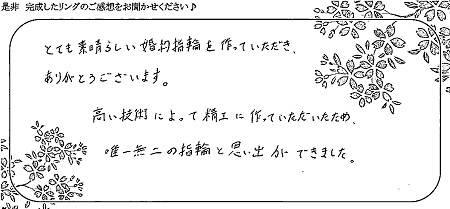 是非 完成したリングのご感想をお聞かせください♪
とても素晴らしい婚約指輪を作っていただき、
ありがとうございます。
高い技術によって精工に作っていただいたため、
唯一無二の指輪と思い出ができました。